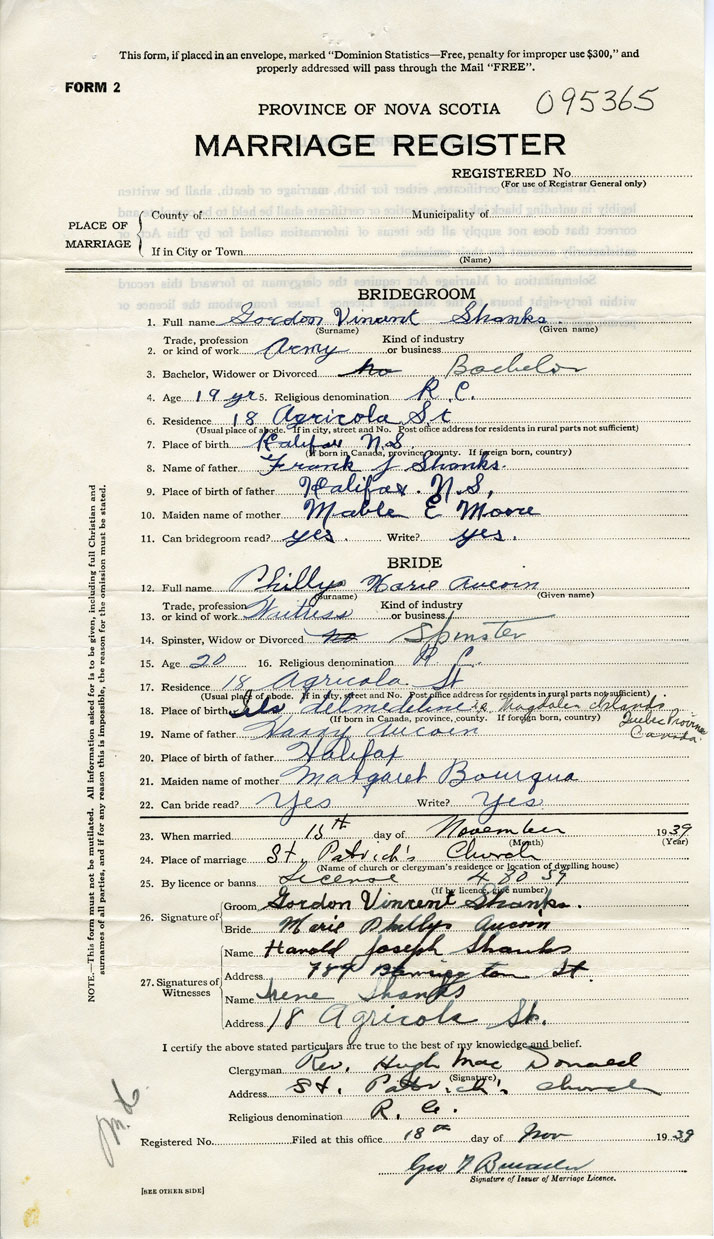 This form, if placed in an envelope, marked "Dominion Statistics—Free, penalty for improper use $300," and
properly addressed will pass through the Mail "FREE".
FORM 2
095365
PROVINCE OF NOVA SCOTIA
MARRIAGE REGISTER
REGISTERED No.
(For use of Registrar General only)
PLACE OF MARRIAGE
County of Municipality of
If in City or Town
(Name)
BRIDEGROOM
1. Full name Gordon Vincent Shanks.
(Surname) (Given name)
Trade, profession Kind of industry
2. or kind of work Army or business
3. Bachelor, Widower or Divorced no Bachelor
4. Age 19 yr 5. Religious denomination R. C.
6. Residence 18 Agricola St
(Usual place of abode. If in city, street and No. Post office address for residents in rural parts not sufficient)
7. Place of birth Halifax N.S.
(If born in Canada, province, county. If foreign born, country)
8. Name of father Frank J Shanks.
9. Place of birth of father Halifax. N.S,
10. Maiden name of mother Mable E Moore
11. Can bridegroom read? yes. Write? yes.
BRIDE
12. Full name Phillys Marie Aucoin
(Surname) (Given name)
Trade, profession Kind of industry
13. or kind of work Waitress or business
14. Spinster, Widow or Divorced no Spinster
15. Age 20 16. Religious denomination R. C.
17. Residence 18 Agricola St
(Usual place of abode. If in city, street and No. Post office address for residents in rural parts not sufficient)
18. Place of birth Magdalen Islands
(If born in Canada, province, county. If foreign born, country)
Quebec Province
Canada.
19. Name of father Harry Aucoin
20. Place of birth of father Halifax
21. Maiden name of mother Margaret Bourqua
22. Can bride read? Yes Write? Yes
23. When married 15th day of November 1939
(Month) (Year)
24. Place of marriage St. Patrick's Church
(Name of church or clergyman's residence or location of dwelling house)
25. By licence or banns License 48059
(If by licence, give number)
26. Signature of
Groom Gordon Vincent Shanks.
Bride Marie Phillys Aucoin
27. Signatures of Witnesses
Name Harold Joseph Shanks
Address 789 Barrington St.
Name Irene Shanks
Address 18 Agricola St.
I certify the above stated particulars are true to the best of my knowledge and belief.
Clergyman Rev. Hugh Mac Donald
(Signature)
Address St. Patrick's Church
Religious denomination R. C.
Registered No. Filed at this office 18th day of Nov 1939
Geo
Signature of Issuer of Marriage Licence.
[SEE OTHER SIDE]
NOTE.—This form must not be mutilated. All information asked for is to be given, including full Christian and
surnames of all parties, and if for any reason this is impossible, the reason for the omission must be stated.